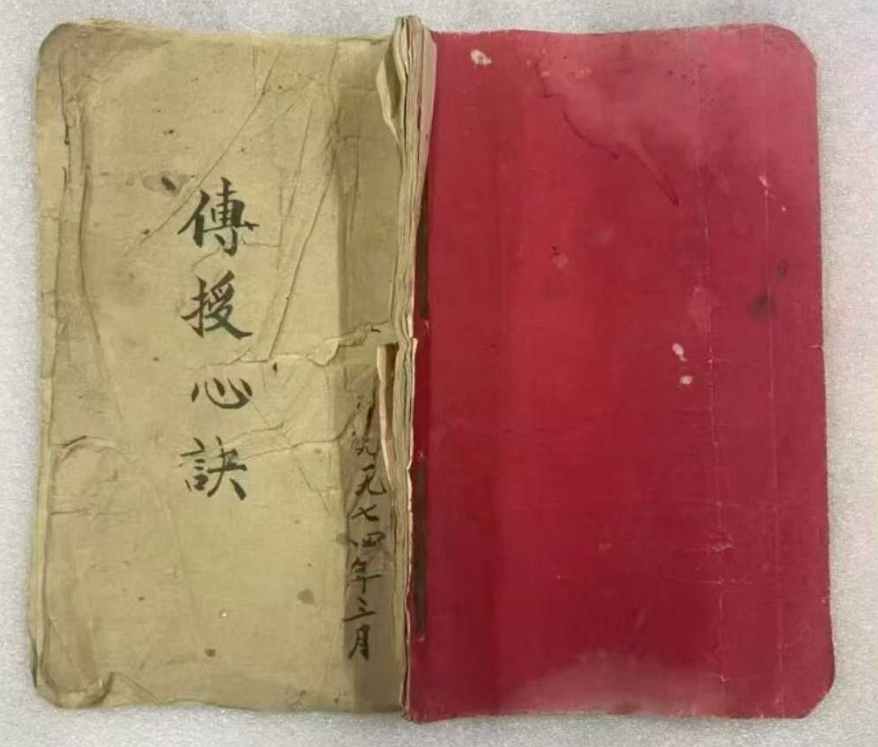 傳授心訣
七四年三月